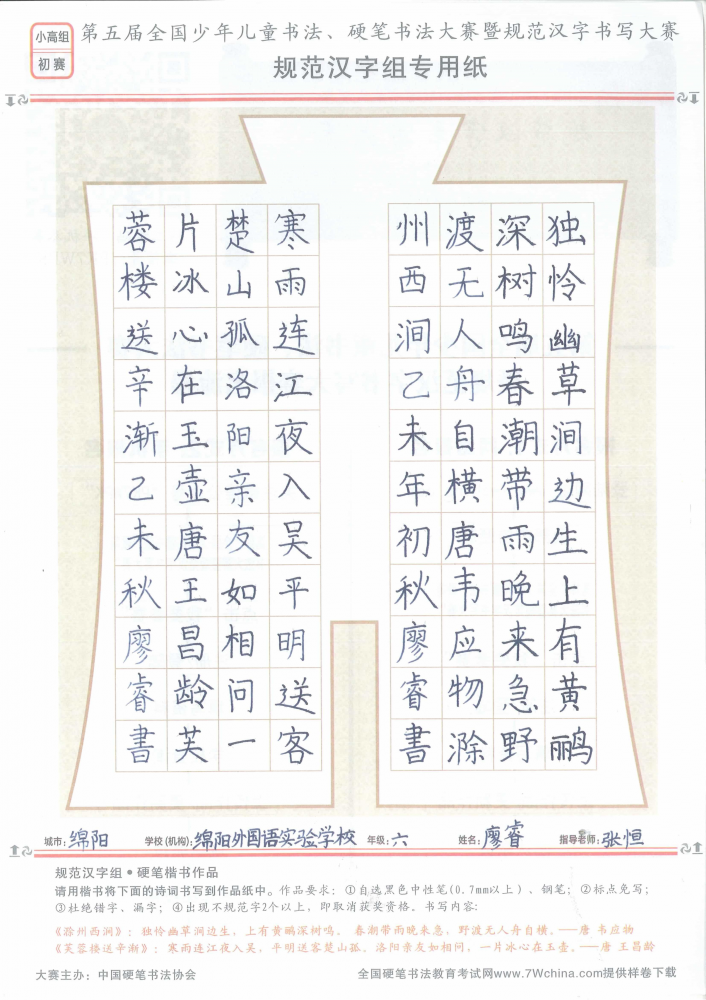 小高组
初赛
第五届全国少年儿童书法、硬笔书法大赛暨规范汉字书写大赛
规范汉字组专用纸
独怜幽草涧边生上有黄鹂
深树鸣春潮带雨晚来急野
渡无人舟自横唐韦应物滁
州西涧乙未年初秋廖睿書
寒雨连江夜入吴平明送客
楚山孤洛阳亲友如相问一
片冰心在玉壶唐王昌龄芙
蓉楼送辛渐乙未秋廖睿書
城市:绵阳 学校(机构):绵阳外国语实验学校 年级:六 姓名:廖睿 指导老师:张恒
规范汉字组•硬笔楷书作品
请用楷书将下面的诗词书写到作品纸中。作品要求：①自选黑色中性笔(0.7mm以上)、钢笔；②标点免写；
③杜绝错字、漏字；④出现不规范字2个以上，即取消获奖资格。书写内容：
《滁州西涧》：独怜幽草涧边生，上有黄鹂深树鸣。 春潮带雨晚来急，野渡无人舟自横。——唐 韦应物
《芙蓉楼送辛渐》：寒雨连江夜入吴，平明送客楚山孤。洛阳亲友如相问，一片冰心在玉壶。——唐 王昌龄
大赛主办：中国硬笔书法协会 全国硬笔书法教育考试网www.7Wchina.com提供样卷下载